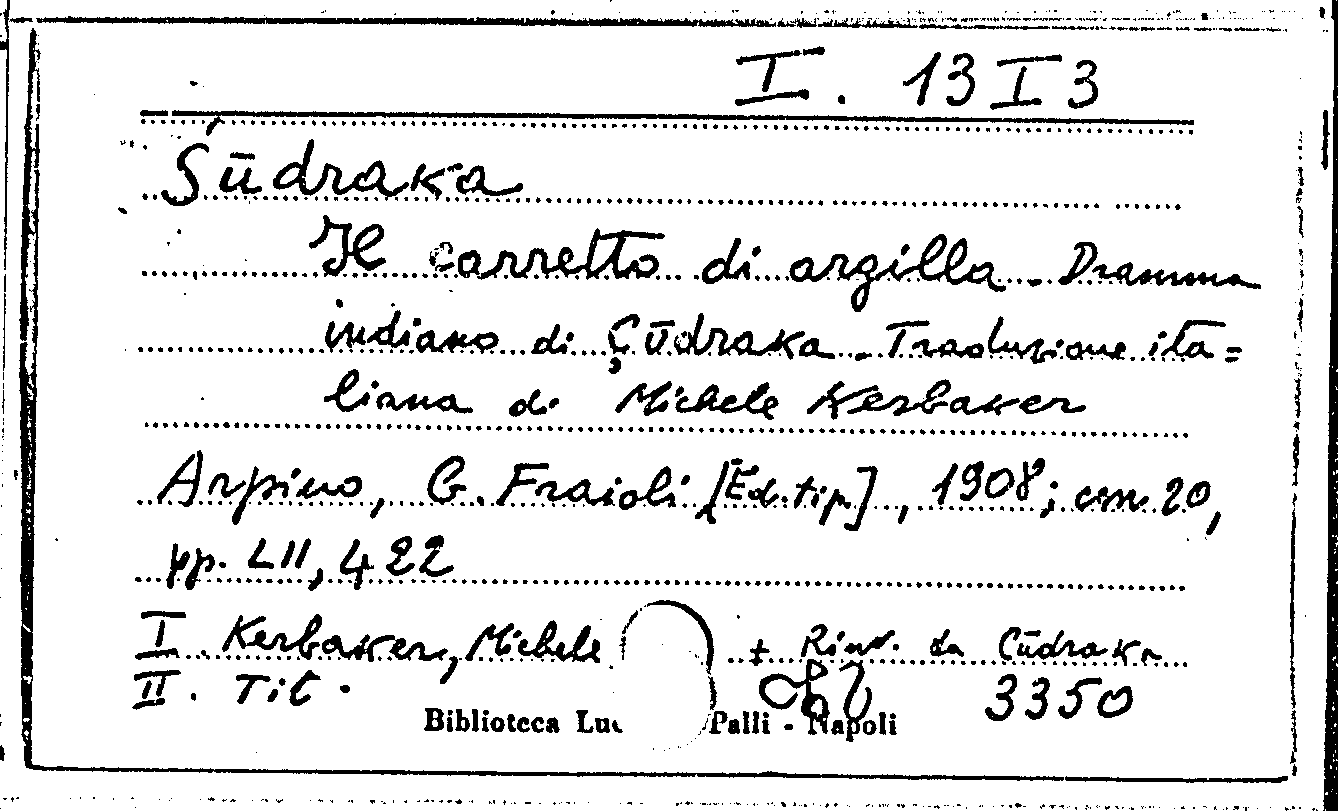 I. 13 I 3
Śūdraka
Il carretto di argilla. Dramma
indiano di Çūdraka. Traduzione ita=
liana di Michele Kerbaker
Arpino, G. Fraioli [Ed. tip.], 1908; cm 20,
pp. LII, 422
I. Kerbaker, Michele + Rinv. da Cūdraka
II. Tit. 3350
Biblioteca Luc Palli - Napoli